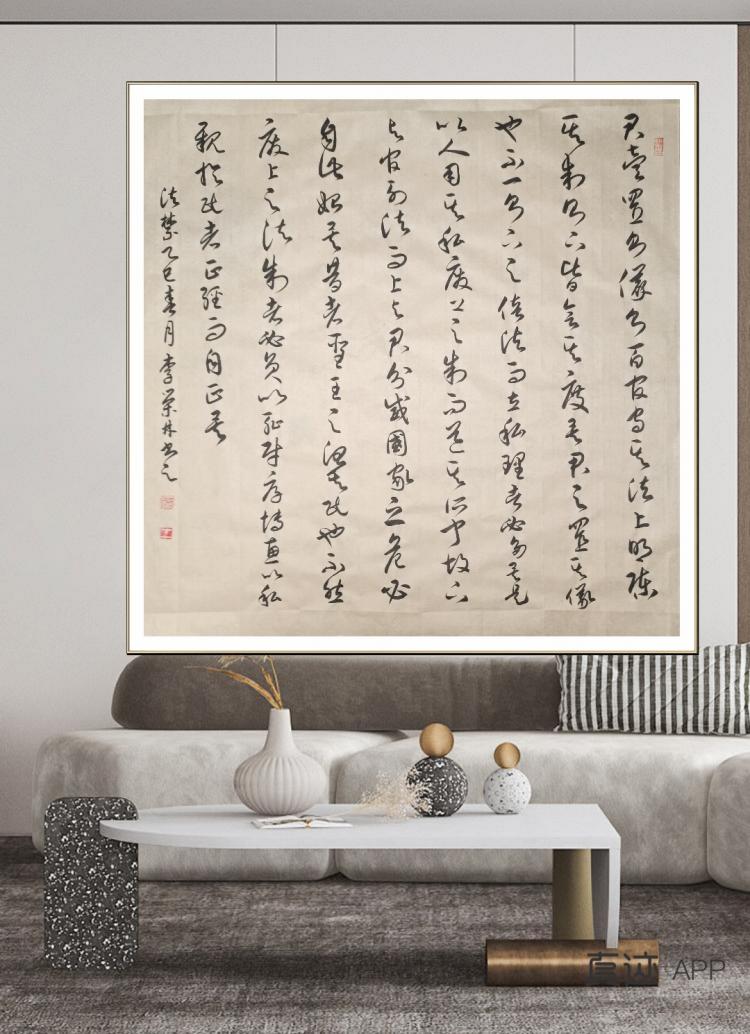 君壹置則儀則百官守其法上明陳
其制則下皆會其度矣君之置其儀
也不一則下之倍法而立私理者必多矣是
以人用其私廢上之制而道其所聞故下
與官列法而上與君分威國家之危必
自此始矣昔者聖王之治其民也不然
廢上之法制者必負以恥財厚博惠以私
親於民者正經而自正矣
法禁乙巳春月李榮林書之
真迹 APP